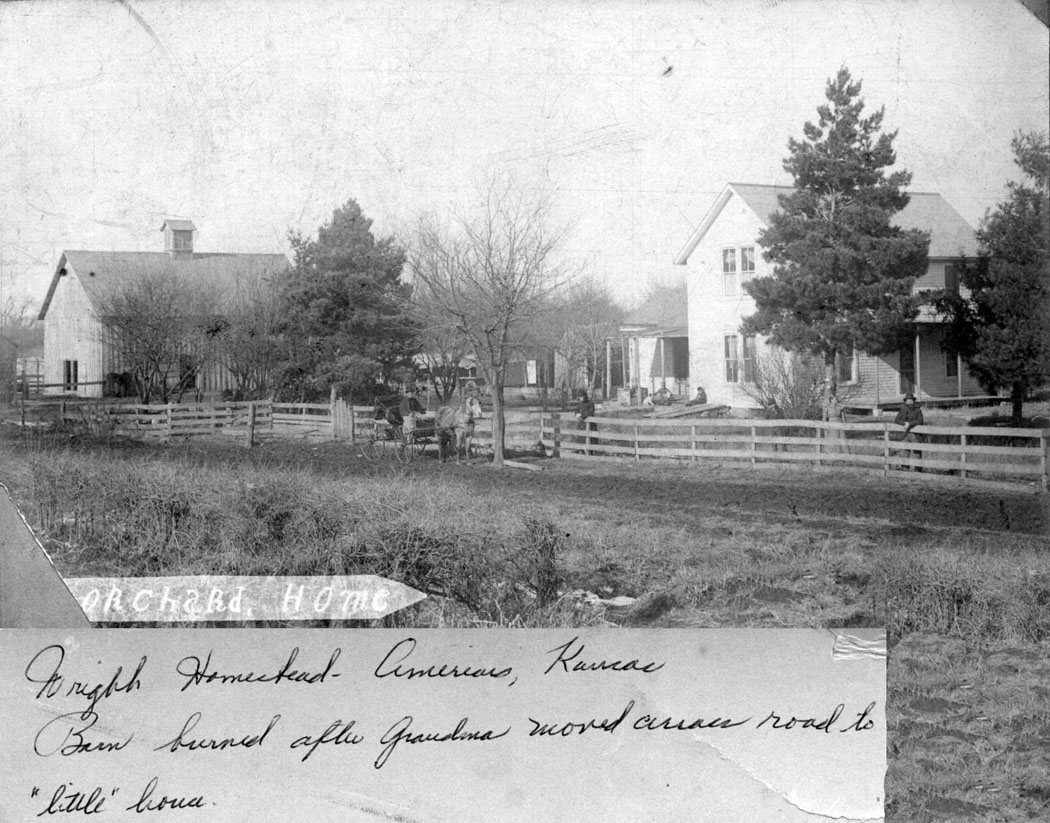 ORCHARD, HOME
Wright Homestead - Americus, Kansas
Barn burned after Grandma moved across road to
"little" house.